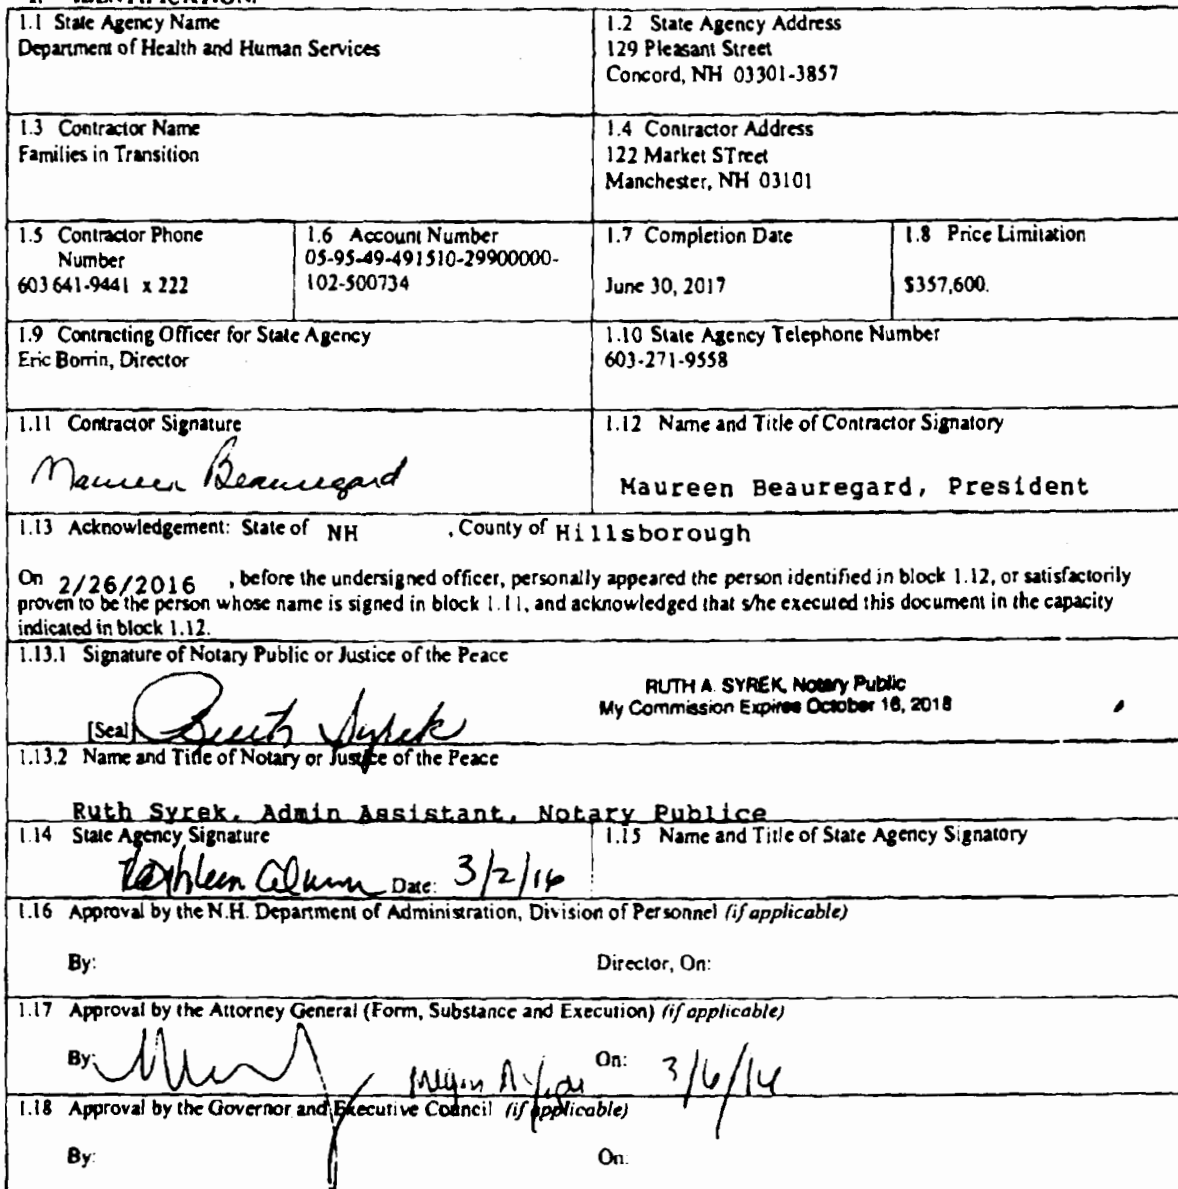 1.1 State Agency Name
Department of Health and Human Services
1.2 State Agency Address
129 Pleasant Street
Concord, NH 03301-3857
1.3 Contractor Name
Families in Transition
1.4 Contractor Address
122 Market STreet
Manchester, NH 03101
1.5 Contractor Phone
Number
603 641-9441 x 222
1.6 Account Number
05-95-49-491510-29900000-
102-500734
1.7 Completion Date
June 30, 2017
1.8 Price Limitation
$357,600.
1.9 Contracting Officer for State Agency
Eric Borrin, Director
1.10 State Agency Telephone Number
603-271-9558
1.11 Contractor Signature
Maureen Beauregard
1.12 Name and Title of Contractor Signatory
Maureen Beauregard, President
1.13 Acknowledgement: State of NH , County of Hillsborough
On 2/26/2016 , before the undersigned officer, personally appeared the person identified in block 1.12, or satisfactorily
proven to be the person whose name is signed in block 1.11, and acknowledged that s/he executed this document in the capacity
indicated in block 1.12.
1.13.1 Signature of Notary Public or Justice of the Peace
RUTH A. SYREK, Notary Public
My Commission Expires October 16, 2018
[Seal] Ruth Syrek
1.13.2 Name and Title of Notary or Justice of the Peace
Ruth Syrek, Admin Assistant, Notary Publice
1.14 State Agency Signature
Kathleen Date: 3/2/16
1.15 Name and Title of State Agency Signatory
1.16 Approval by the N.H. Department of Administration, Division of Personnel (if applicable)
By: Director, On:
1.17 Approval by the Attorney General (Form, Substance and Execution) (if applicable)
By: On: 3/6/16
1.18 Approval by the Governor and Executive Council (if applicable)
By: On: